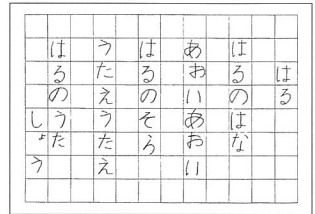 はる
はるのはな
あおいあおい
はるのそら
うたえうたえ
はるのうた
しょう